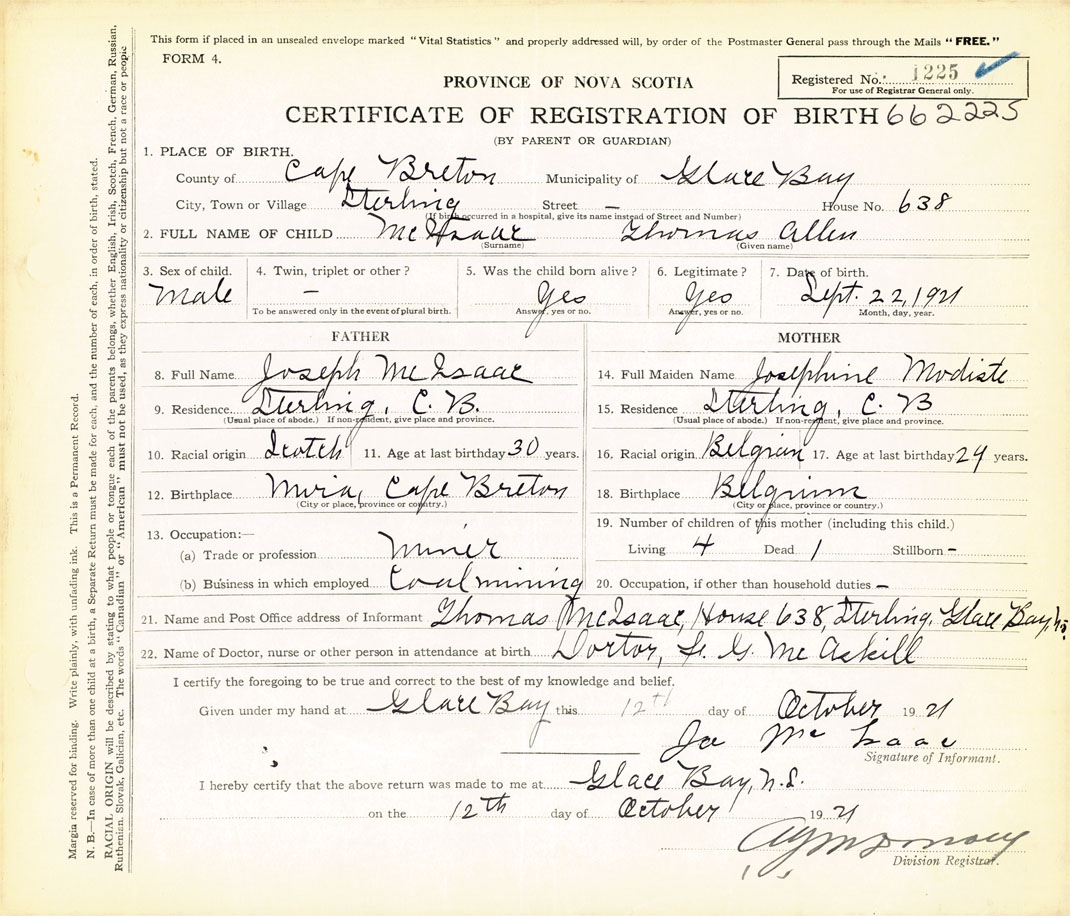 This form if placed in an unsealed envelope marked "Vital Statistics" and properly addressed will, by order of the Postmaster General pass through the Mails "FREE."
FORM 4.
Registered No. 1225
For use of Registrar General only.
PROVINCE OF NOVA SCOTIA
CERTIFICATE OF REGISTRATION OF BIRTH 662225
(BY PARENT OR GUARDIAN)
1. PLACE OF BIRTH.
County of Cape Breton Municipality of Glace Bay
City, Town or Village Sterling Street – House No. 638
(If birth occurred in a hospital, give its name instead of Street and Number)
2. FULL NAME OF CHILD McIsaac Thomas Allen
(Surname) (Given name)
3. Sex of child. 4. Twin, triplet or other? 5. Was the child born alive? 6. Legitimate? 7. Date of birth.
Male – Yes Yes Sept. 22, 1921
To be answered only in the event of plural birth. Answer, yes or no. Answer, yes or no. Month, day, year.
FATHER
8. Full Name Joseph McIsaac
9. Residence Sterling, C. B.
(Usual place of abode.) If non-resident, give place and province.
10. Racial origin Scotch 11. Age at last birthday 30 years.
12. Birthplace Mira, Cape Breton
(City or place, province or country.)
13. Occupation:—
(a) Trade or profession Miner
(b) Business in which employed Coal mining
MOTHER
14. Full Maiden Name Josephine Modiste
15. Residence Sterling, C. B
(Usual place of abode.) If non-resident, give place and province.
16. Racial origin Belgian 17. Age at last birthday 29 years.
18. Birthplace Belgium
(City or place, province or country.)
19. Number of children of this mother (including this child.)
Living 4 Dead 1 Stillborn –
20. Occupation, if other than household duties –
21. Name and Post Office address of Informant Thomas McIsaac, House 638, Sterling, Glace Bay, N.S.
22. Name of Doctor, nurse or other person in attendance at birth Doctor, McAskill
I certify the foregoing to be true and correct to the best of my knowledge and belief.
Given under my hand at Glace Bay this 12th day of October 1921
Joe McIsaac
Signature of Informant.
I hereby certify that the above return was made to me at Glace Bay, N.S.
on the 12th day of October 1921
Division Registrar.
Margin reserved for binding. Write plainly, with unfading ink. This is a Permanent Record.
N. B.—In case of more than one child at a birth, a Separate Return must be made for each, and the number of each, in order of birth, stated.
RACIAL ORIGIN will be described by stating to what people or tongue each of the parents belongs, whether English, Irish, Scotch, French, German, Russian,
Ruthenian, Slovak, Galician, etc. The words "Canadian" or "American" must not be used, as they express nationality or citizenship but not a race or people